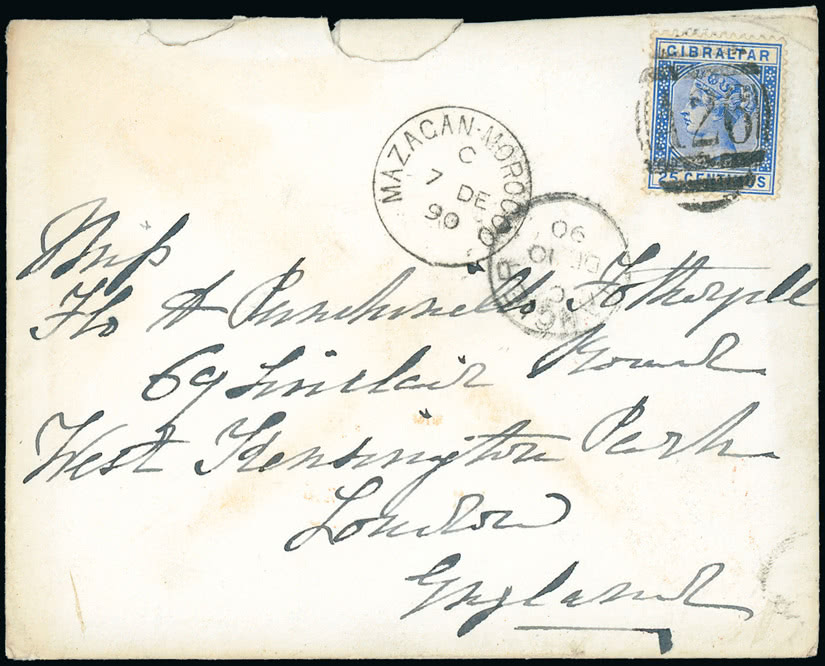 GIBRALTAR
A26
25 CENTIMOS
MAZAGAN-MOROCCO
C
7 DE
90
TANGIER
C
DE 10
90
Miss
Flo A Punchinello Fothergill
69 Sinclair Road
West Kensington Park
London
England